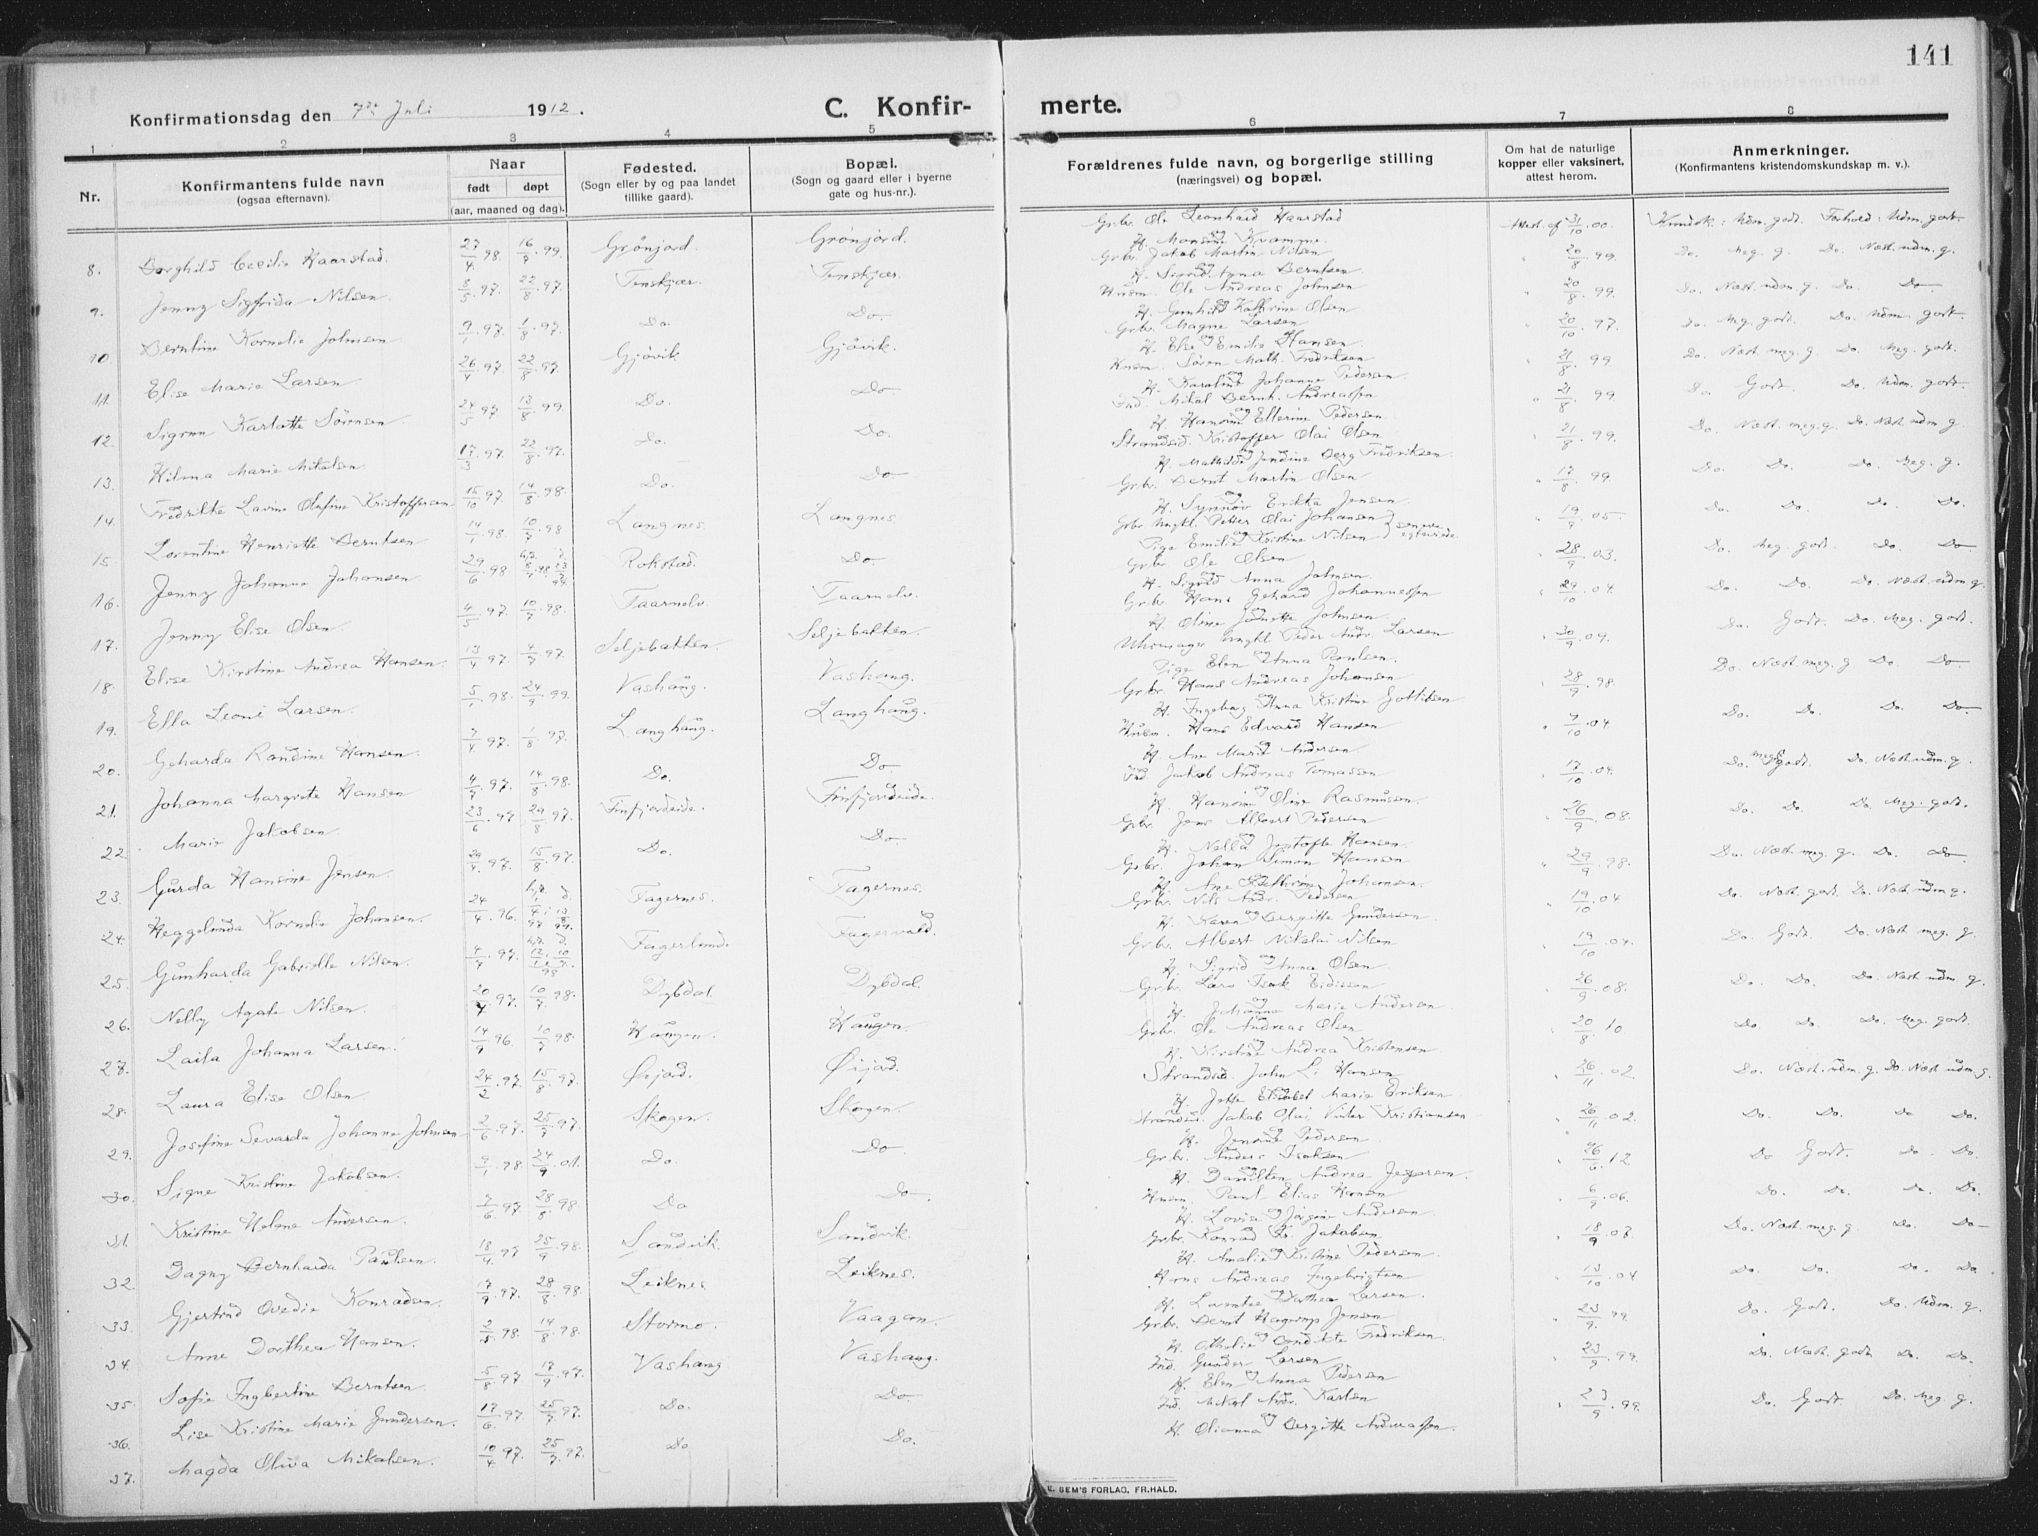 141
Konfirmationsdag den 7de Juli 1912.
C. Konfir-
merte.
1 2 3 4 5 6 7 8
Nr.
Konfirmantens fulde navn
(ogsaa efternavn).
Naar
født døpt
(aar, maaned og dag).
Fødested.
(Sogn eller by og paa landet
tillike gaard).
Bopæl.
(Sogn og gaard eller i byerne
gate og hus-nr.).
Forældrenes fulde navn, og borgerlige stilling
(næringsvei) og bopæl.
Om hat de naturlige
kopper eller vaksinert,
attest herom.
Anmerkninger.
(Konfirmantens kristendomskundskap m. v.).
8. Borghild Cecilie Haarstad. 27/4.98. 16/7.99. Grönjord. Grönjord.
9. Jenny Sigfrida Nilsen. 8/5.97. 22/8.97. Tenskjær. Tenskjær.
10 Berntine Kornelie Johnsen 9/1.97. 1/8.97. Do. Do.
11. Elise Marie Larsen 26/4.97. 22/8.97. Gjövik Gjövik.
12. Sigrun Karlotte Sörensen 24/5.97. 13/8.99. Do. Do
13. Hilma Marie Mikalsen 17/3.97. 22/8.97. Do. Do.
14. Fredrikke Lavine Olufine Kristoffersen 15/10.97. 14/8.98. Do. Do
15. Lorentine Henriette Berntsen 14/1.98. 10/7.98 Langnes. Langnes.
16. Jenny Johanne Johansen 29/6.98 Rokstad. Do.
17. Jenny Elise Olsen. 4/5.97. 10/7.98. Taarnelv. Taarnelv.
18. Elise Kirstine Andrea Hansen. 13/4.97. 4/7.97. Seljebakken. Seljebakken.
19. Ella Leoni Larsen. 5/1.98. 24/9.99. Vashaug. Vashaug.
20. Geharda Randine Hansen. 7/4.97. 1/8.97. Langhaug. Langhaug.
21. Johanna Margrete Hansen 14/8.98. Do. Do.
22. Marie Jakobsen. 23/6.97 29/8.97. Finfjordeide. Finfjordeide.
23. Gurda Hansine Jensen. 29/4.97. 15/8.97. Do. Do
24. Heggelunda Kornelie Johansen. 24/4.96. Fagernes. Fagernes.
25. Gunharda Gabrielle Nilsen. 4/7.97. Fagerlund. Fagervold.
26. Nelly Agate Nilsen. 97. 10/7.98. Dybdal Dybdal.
27. Laila Johanna Larsen. 14/9.96. 10/7.98. Haugen. Haugen.
28. Laura Elise Olsen. 24/2.97. 15/8.97. Öijord. Öijord.
29. Josefine Sevarda Johanne Johnsen 2/6.97. 25/7.97. Skogen. Skogen.
30. Signe Kristine Jakobsen. 9/1.98 24/9.01. Do. Do
31. Kristine Helene Andersen. 7/6.97. 28/8.98 Do Do.
32. Dagny Bernharda Paulsen. 18/4.97 25/9.98. Sandvik Sandvik.
33. Gjertrud Ovedie Konradsen. 17/9.97. 28/8.98 Leiknes Leiknes.
34. Anne Dorthea Hansen. 98. 14/8.98. Stormo. Vaagan.
35. Sofie Ingbertine Berntsen. 5/8.97. 17/9.97. Vashaug Vashaug.
36. Lise Kristine Marie Gundersen. 17/6.97. 25/7.97. Do. Do
37. Magda Oliva Mikalsen. 10/4.97. 25/7.97. Do Do.
Grbr. Ole Leonhard Haarstad
H. Monsine Kvamme. Attest af 31/10.00. Kundsk.: Udm. godt. Forhold: Udm. godt.
Grbr. Jakob Martin Nilsen
H. Sigrid Anna Berntsen 20/8.99. Do. Meg. g. Do. Næst. udm. g.
Husm. Ole Andreas Johnsen
H. Gunhild Kathrine Olsen 20/8.99. Do. Næst. udm. g. Do. Do
Grbr. Magne Larsen
H. Else og Emilie Hansen 20/10.97. Do. Meg. godt. Do. Udm. godt.
Husm. Sören Math. Fredriksen
H. Karoline Johanne Pedersen. 21/8.99. Do. Næst. meg. g. Do. Meg. godt.
Ind. Mikal Bernh. Andreassen
H. Hansine Ellerine Pedersen. 21/8.99 Do Godt. Do. Udm. godt.
Strandsid. Kristoffer Olai Olsen
H. Mathilde Jendine Berg Fredriksen. 21/8.99. Do. Næst. meg. g. Do. Næst udm g.
Grbr. Bernt Martin Olsen
H. Synnöv Erikka Jensen. 17/8.99. Do Do. Do. Meg. g.
Grbr Ungkl. Petter Olai Johansen
Pige Emilie Kristine Nilsen 19/9.05. Do. Do. Do. Do.
Grbr Ole Olsen
H. Sigrid Anna Johnsen. 28/9.03. Do. Meg. godt. Do. Do
Grbr. Hans Gehard Johannessen
H. Oline Janette Johnsen 29/10.04. Do. Do. Do. Næst. udm. g.
Uhrmager Ungkl. Peder Andr. Larsen
Pige Elen Anna Paulsen. 30/9.09. Do. Godt. Do. Meg. godt.
Grbr. Hans Andreas Johansen
H. Ingeborg Anna Kristine Gottlibsen 28/9.98. Do. Næst. meg. g Do. Do
Husm. Hans Edvard Hansen
H Ane Marie Andersen 7/10.04 Do. Do. Do. Do.
Ind Jakob Andreas Tomassen
H. Hansine Oline Rasmussen. 17/10.04. Do. meget godt. Do. Næst udm. g.
Grbr. Jens Albert Pedersen
H. Nella Hansen. 26/9.08. Do. Do. Do. Meg. godt.
Grbr. Johan Simon Hansen
H. Ane Kathrine Johansen. 29/9.98. Do. Næst. meg. g. Do. Do
Grbr. Nils Andr. Pedersen
H. Karen Bergitte Gundersen. 19/10.04 Do. Næst. godt. Do. Næst udm g.
Grbr. Albert Nikolai Nilsen
H. Sigrid Anna Olsen. 19/10.04. Do. Godt. Do. Næst meg. g.
Grbr. Lars Isak Eidissen
H. Johanna Marie Andersen 26/9.08. Do. Do. Do. Næst. udm. g.
Grbr. Ole Andreas Olsen
H. Kirstine Andrea Kristensen 20/8.10 Do. Do. Do. Meg. godt.
Strandsid. John L. Hansen
H. Jette Elisabet Marie Eriksen. 26/11.02. Do. Næst. udm. g. Do. Næst udm. g.
Strandsid. Jakob Olai Vinter Kristiansen
H. Jensine Pedersen 26/11.02. Do. Do. Do Do.
Grbr. Anders Isaksen
H. Danilken Andrea Jespersen. 26/6.12. Do Godt. Do. Do.
Husm. Paul Elias Hansen
H. Lovise Jörgine Andersen. 6/9.06. Do. Do. Do. Do.
Grbr. Konrad Kr. Jakobsen
H. Amalie Kristine Pedersen. 18/9.03. Do. Næst. meg. g. Do. Do
Hans Andreas Ingebrigtsen
H. Lorentze Dorthea Larsen. 13/10.04 Do. Do. Do. Do.
Grbr. Bernt Hagerup Jensen
H. Othelie Bendikte Fredriksen. 23/9.99. Do. Godt. Do. Udm. g.
Ind. Gunder Larsen
H. Elen Anna Pedersen 23/9.99. Do. Næst. godt Do. Do.
Ind. Mikal Andr. Karlsen
H. Olianna Bergitte Andreassen. 23/9.99. Do. Godt. Do. Meg. g.
E. SEM'S FORLAG, FR.HALD.